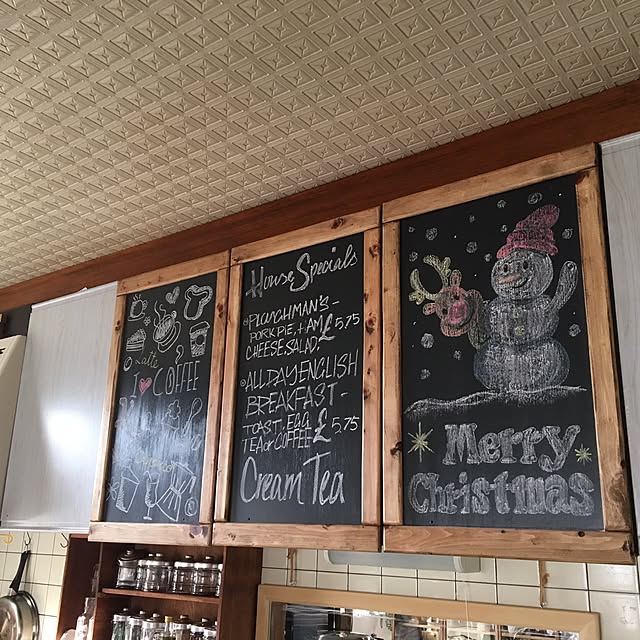 Latte
I COFFEE
House Specials
PLOUGHMAN'S -
PORK PIE, HAM £5.75
CHEESE, SALAD.
ALL DAY ENGLISH
BREAKFAST -
TOAST, EGG, £5.75
TEA or COFFEE
Cream Tea
Merry
Christmas